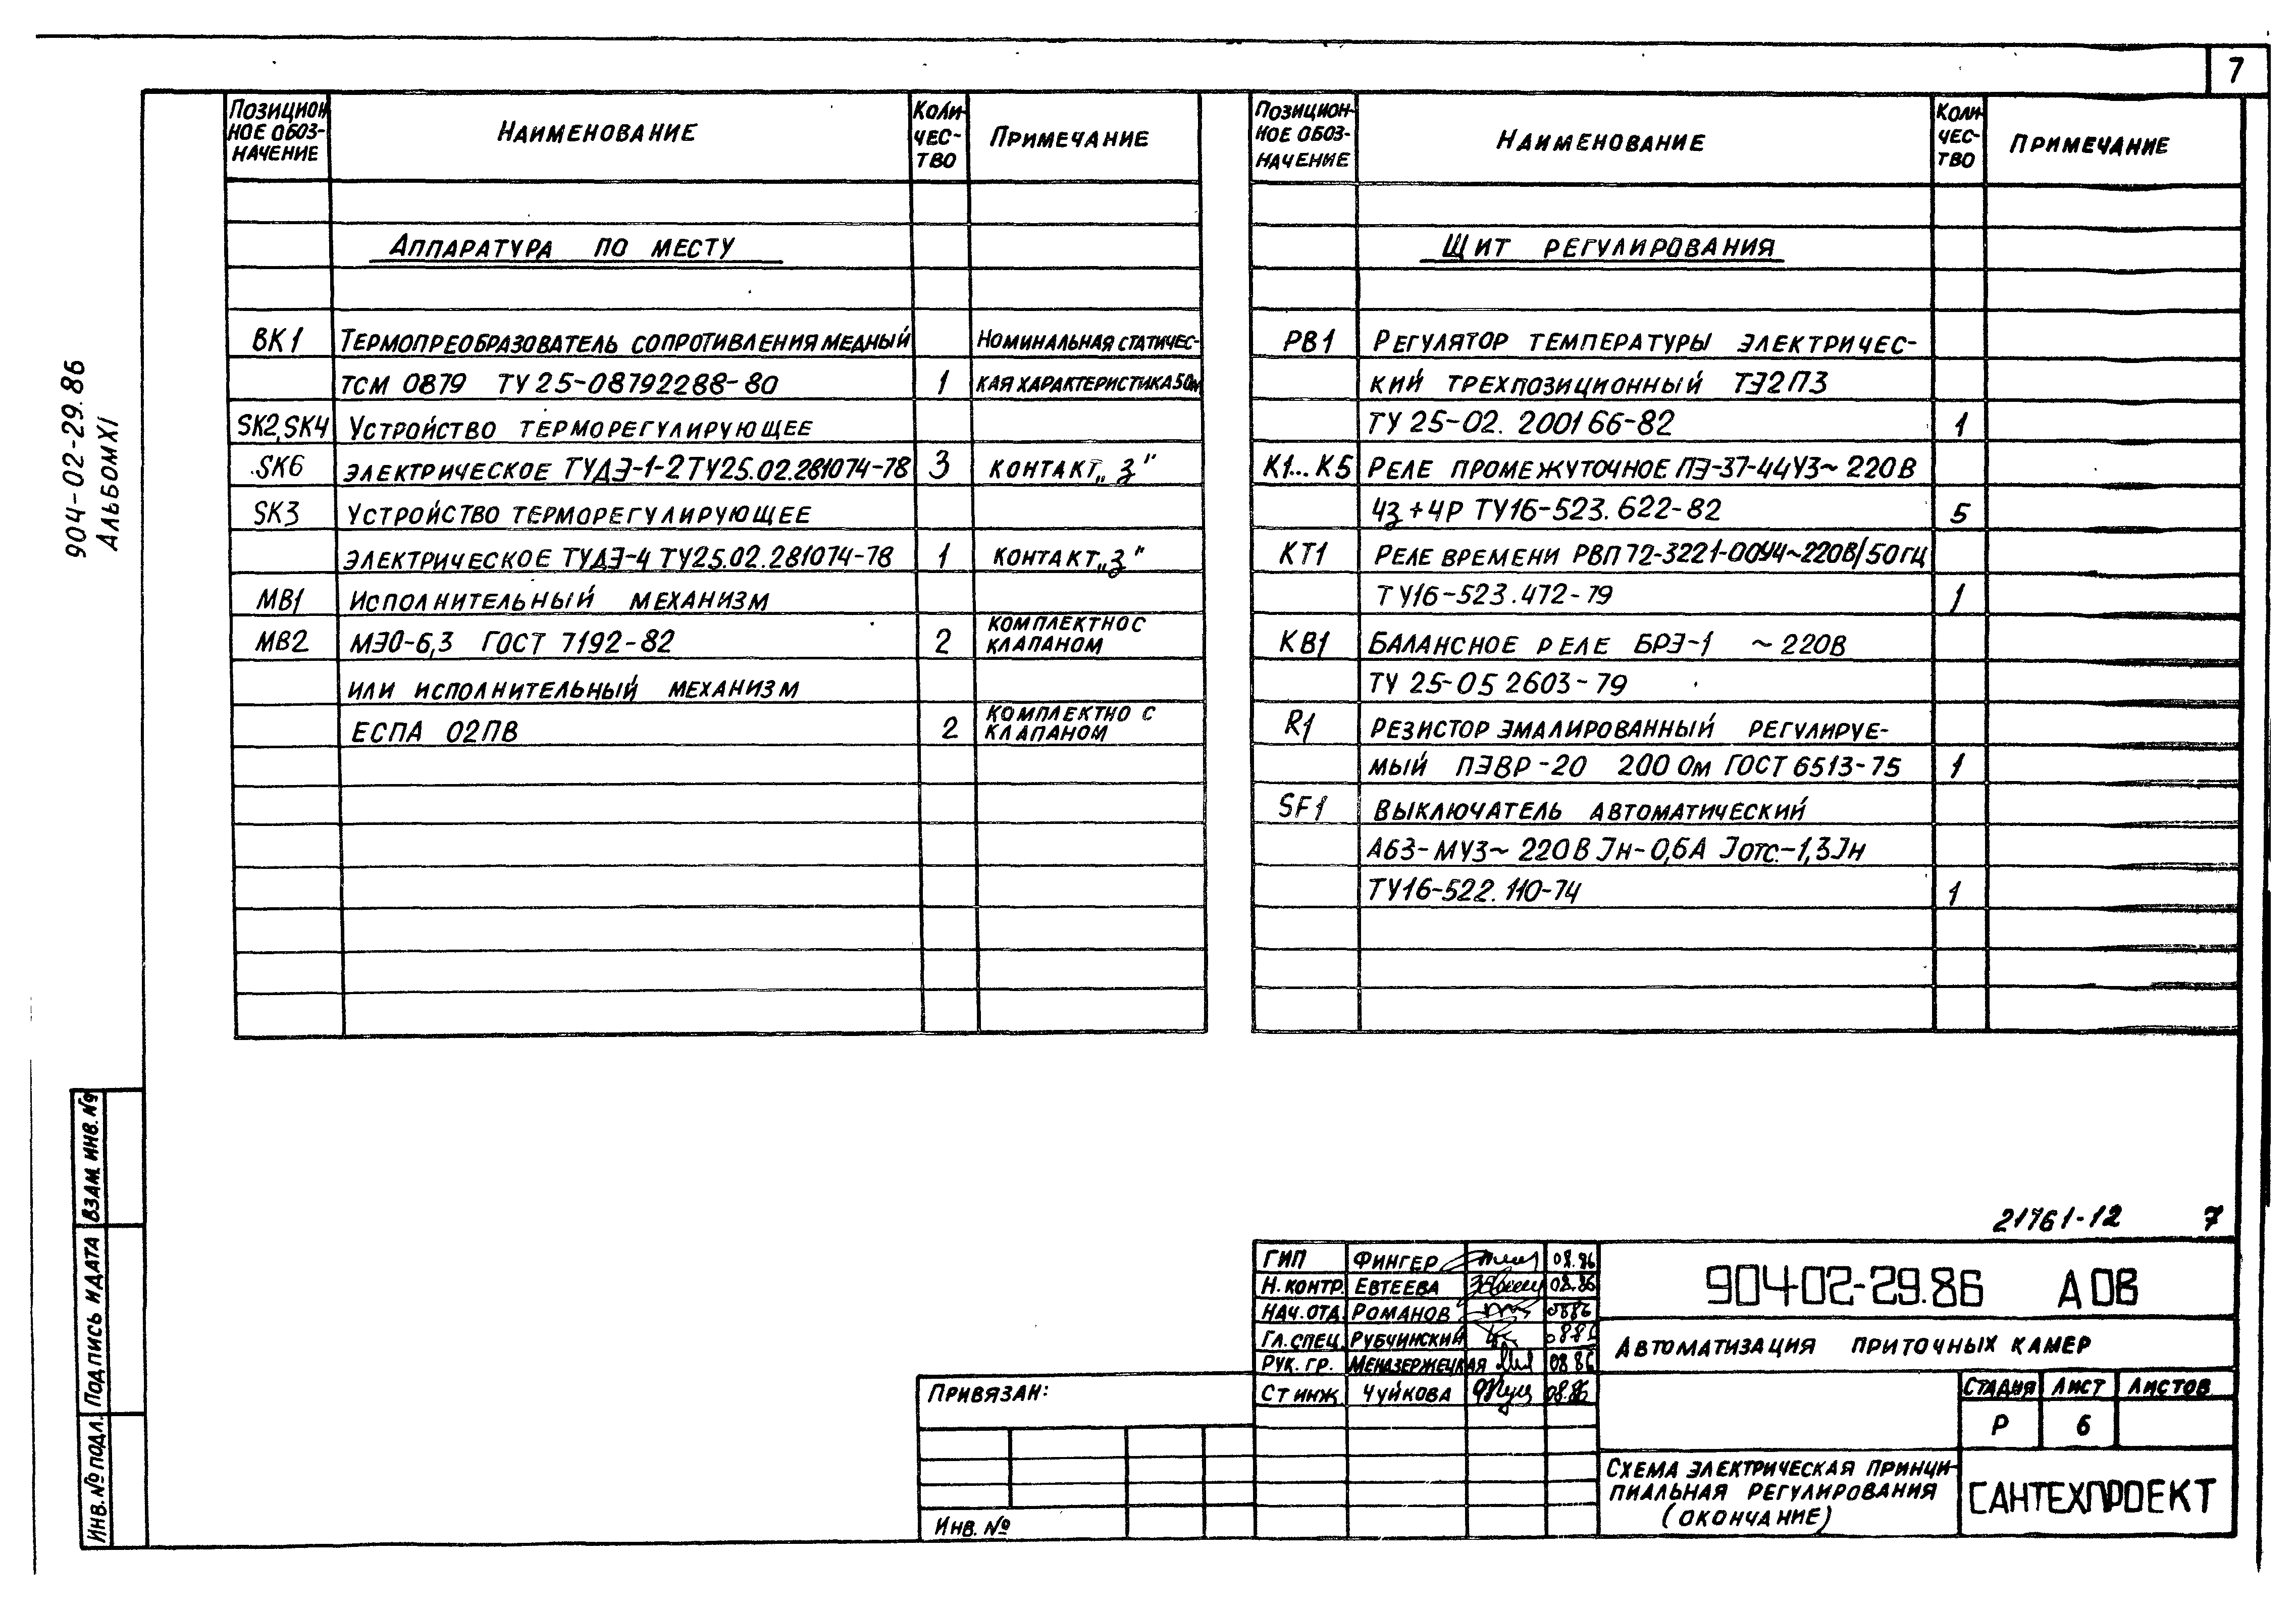 7
904-02-29.86
АЛЬБОМ XI
ПОЗИЦИОН
НОЕ ОБОЗ-
НАЧЕНИЕ
НАИМЕНОВАНИЕ
КОЛИ-
ЧЕС-
ТВО
ПРИМЕЧАНИЕ
АППАРАТУРА ПО МЕСТУ
ВК1 ТЕРМОПРЕОБРАЗОВАТЕЛЬ СОПРОТИВЛЕНИЯ МЕДНЫЙ НОМИНАЛЬНАЯ СТАТИЧЕС-
ТСМ 0879 ТУ 25-08792288-80 1 КАЯ ХАРАКТЕРИСТИКА 50М
SK2, SK4 УСТРОЙСТВО ТЕРМОРЕГУЛИРУЮЩЕЕ
SK6 ЭЛЕКТРИЧЕСКОЕ ТУДЭ-1-2 ТУ25.02.281074-78 3 КОНТАКТ „З"
SK3 УСТРОЙСТВО ТЕРМОРЕГУЛИРУЮЩЕЕ
ЭЛЕКТРИЧЕСКОЕ ТУДЭ-4 ТУ25.02.281074-78 1 КОНТАКТ „З"
МВ1 ИСПОЛНИТЕЛЬНЫЙ МЕХАНИЗМ
МВ2 МЭО-6,3 ГОСТ 7192-82 2 КОМПЛЕКТНО С
КЛАПАНОМ
ИЛИ ИСПОЛНИТЕЛЬНЫЙ МЕХАНИЗМ
ЕСПА 02ПВ 2 КОМПЛЕКТНО С
КЛАПАНОМ
ПОЗИЦИОН-
НОЕ ОБОЗ-
НАЧЕНИЕ
НАИМЕНОВАНИЕ
КОЛИ-
ЧЕС-
ТВО
ПРИМЕЧАНИЕ
ЩИТ РЕГУЛИРОВАНИЯ
РВ1 РЕГУЛЯТОР ТЕМПЕРАТУРЫ ЭЛЕКТРИЧЕС-
КИЙ ТРЕХПОЗИЦИОННЫЙ ТЭ2П3
ТУ 25-02. 200166-82 1
К1... К5 РЕЛЕ ПРОМЕЖУТОЧНОЕ ПЭ-37-44У3~ 220В
4з + 4Р ТУ16-523. 622-82 5
КТ1 РЕЛЕ ВРЕМЕНИ РВП 72-3221-00У4~220В/50ГЦ
ТУ16-523.472-79 1
КВ1 БАЛАНСНОЕ РЕЛЕ БРЭ-1 ~ 220В
ТУ 25-05 2603-79
R1 РЕЗИСТОР ЭМАЛИРОВАННЫЙ РЕГУЛИРУЕ-
МЫЙ ПЭВР-20 200 Ом ГОСТ 6513-75 1
SF1 ВЫКЛЮЧАТЕЛЬ АВТОМАТИЧЕСКИЙ
А63-МУ3~ 220В Jн-0,6А Jотс.-1,3Jн
ТУ16-522. 110-74 1
ВЗАМ. ИНВ. №
ПОДПИСЬ И ДАТА
ИНВ. № ПОДЛ.
21761-12 7
ГИП ФИНГЕР 08.86
Н. КОНТР. ЕВТЕЕВА 08.86
НАЧ. ОТД. РОМАНОВ 0886
ГЛ. СПЕЦ. РУБЧИНСКИЙ
РУК. ГР. МЕНАЗЕРЖЕЦКАЯ 08 86
СТ ИНЖ. ЧУЙКОВА 08.86
90402-29.86 АОВ
АВТОМАТИЗАЦИЯ ПРИТОЧНЫХ КАМЕР
СТАДИЯ ЛИСТ ЛИСТОВ
Р 6
СХЕМА ЭЛЕКТРИЧЕСКАЯ ПРИНЦИ-
ПИАЛЬНАЯ РЕГУЛИРОВАНИЯ
(ОКОНЧАНИЕ)
САНТЕХПРОЕКТ
ПРИВЯЗАН:
ИНВ. №